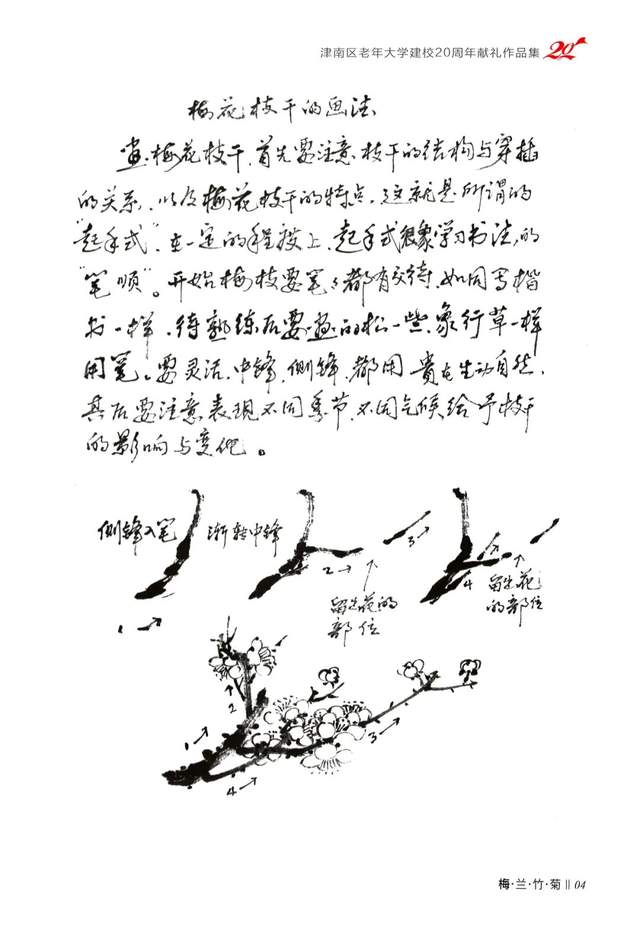 津南区老年大学建校20周年献礼作品集
20
梅花枝干的画法
画梅花枝干,首先要注意枝干的结构与穿插
的关系,以及梅花枝干的特点,这就是所谓的
"起手式",在一定的程度上,起手式很象学习书法的
"笔顺"。开始梅枝要笔笔都有交待,如同写楷
书一样,待熟练后要画的松一些,象行草一样
用笔。要灵活,中锋,侧锋,都用,贵在生动自然,
其后要注意表现不同季节,不同气候给予枝干
的影响与变化。
侧锋入笔
渐转中锋
1
2
留出花的
部位
3
4
留出花
的部位
1
2
3
4
梅·兰·竹·菊 || 04